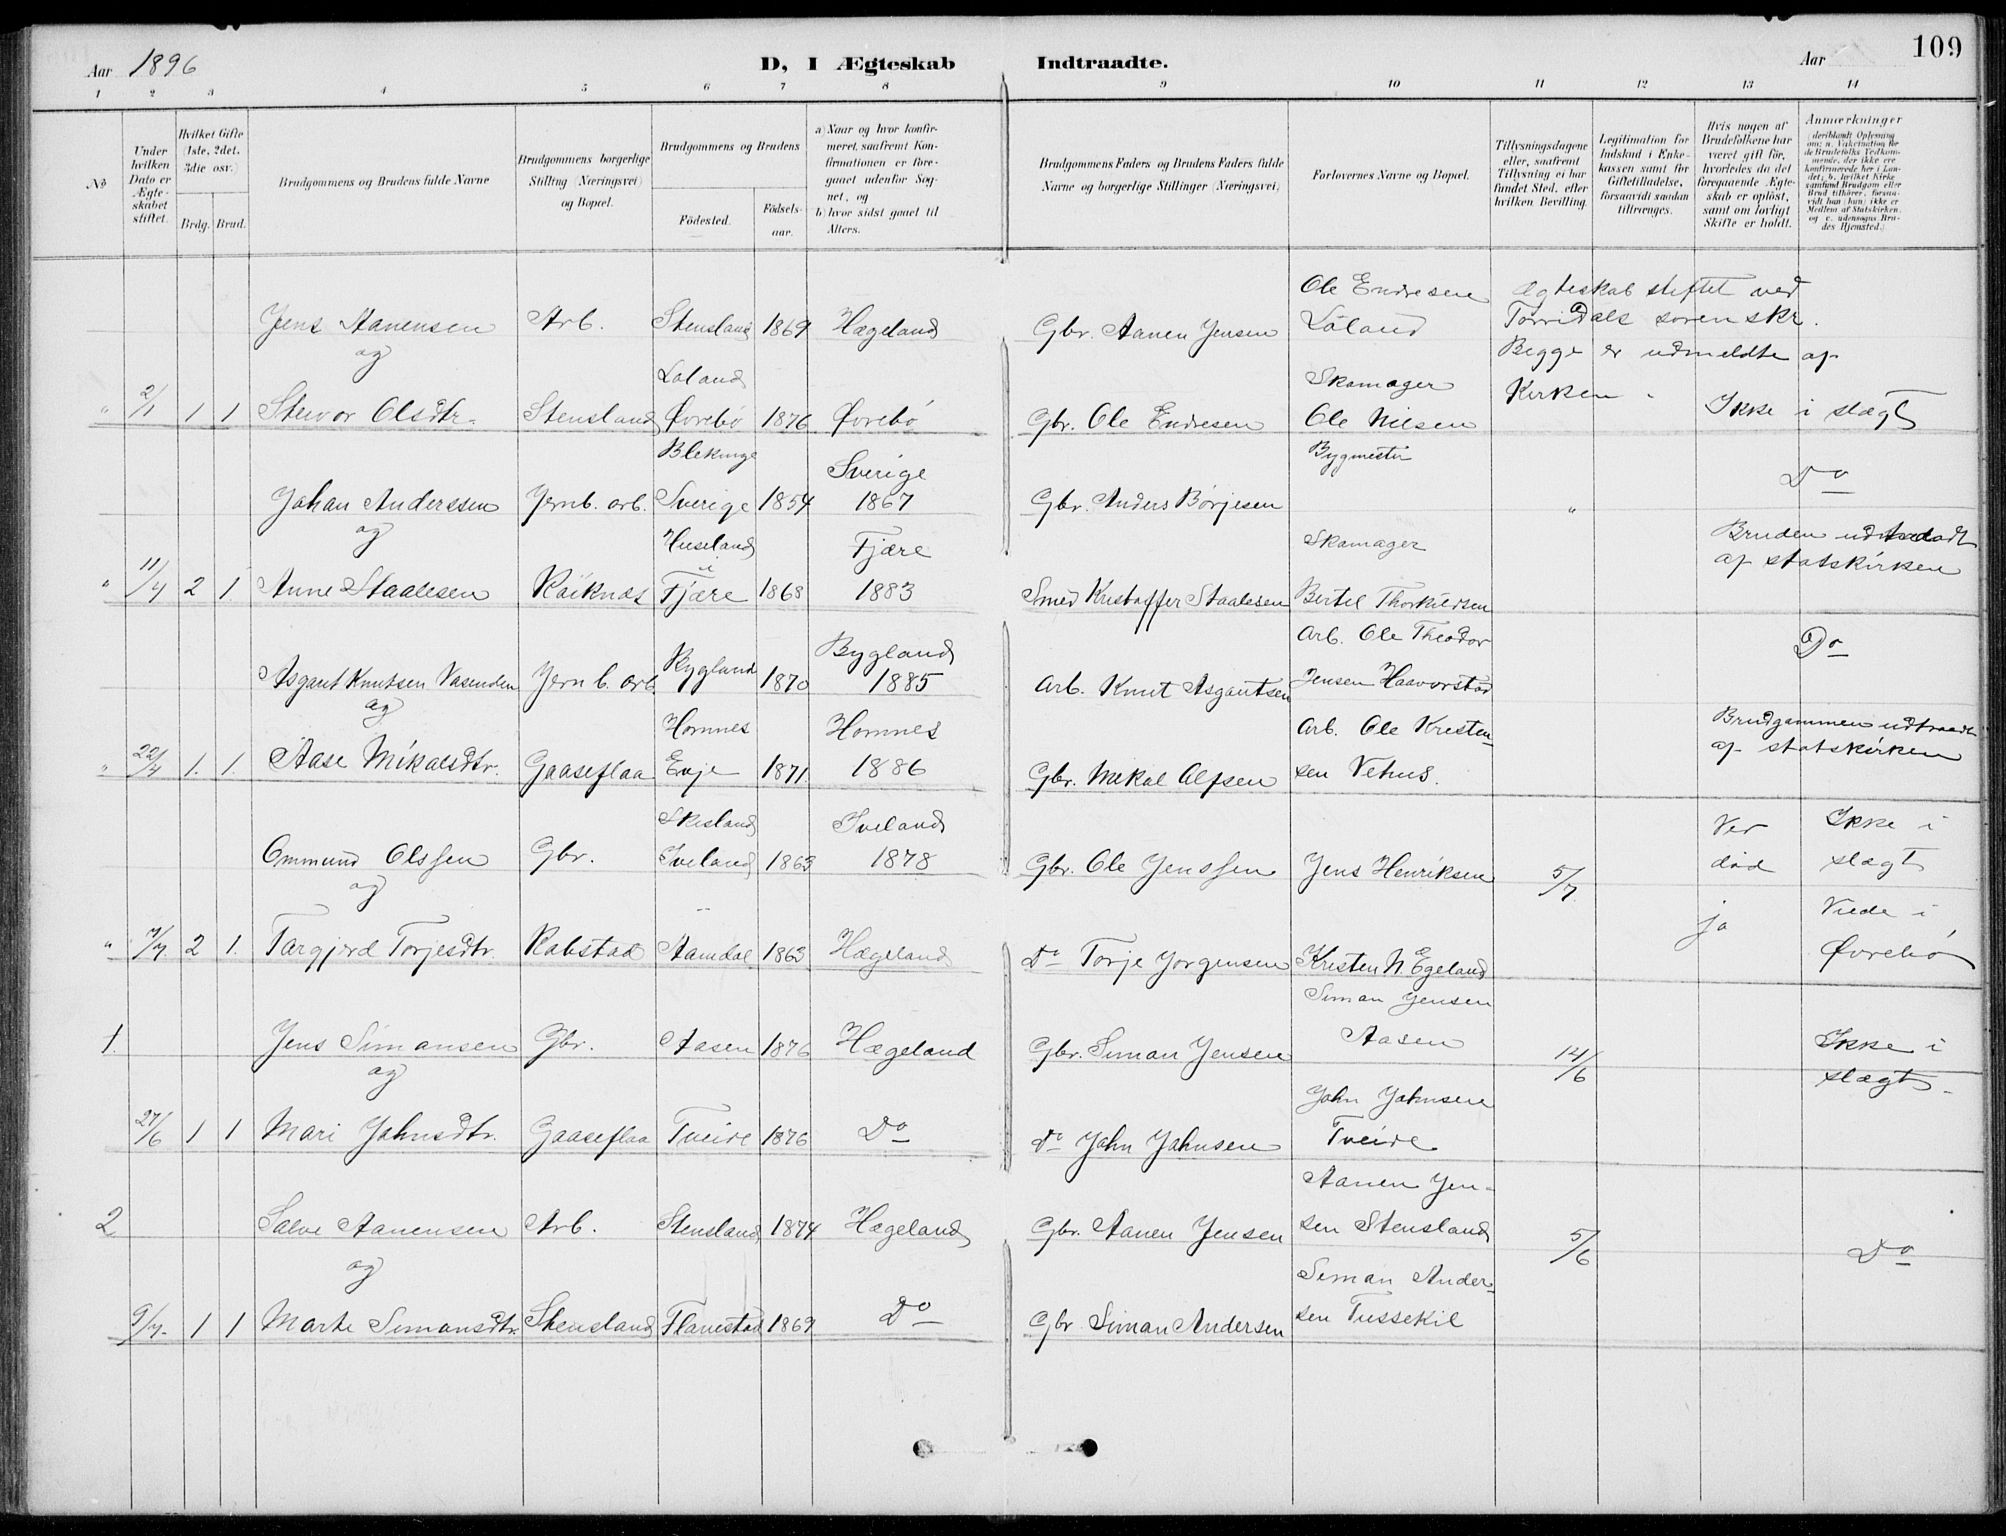 109
Aar 1896
D, I Ægteskab Indtraadte.
Aar
1 2 3 4 5 6 7 8 9 10 11 12 13 14
No
Under hvilken Dato er Ægteskabet stiftet.
Hvilket Gifte (1ste, 2det, 3die osv.)
Brdg. Brud.
Brudgommens og Brudens fulde Navne
Brudgommens borgerlige Stilling (Næringsvei) og Bopæl.
Brudgommens og Brudens
Fødested.
Fødselsaar.
a) Naar og hvor konfirmeret, saafremt Konfirmationen er foregaaet udenfor Sognet, og
b) hvor sidst gaaet til Alters.
Brudgommens Faders og Brudens Faders fulde Navne og borgerlige Stillinger (Næringsvei)
Forlovernes Navne og Bopæl.
Tillysningsdagene eller, saafremt Tillysning ei har fundet Sted, efter hvilken Bevilling.
Legitimation for Indskud i Enkekassen samt for Giftetilladelse, forsaavidt saadan tiltrænges.
Hvis nogen af Brudefolkene har været gift før, hvorledes da det foregaaende Ægteskab er opløst, samt om lovligt Skifte er holdt.
Anmærkninger
(deriblandt Oplysning om: a. Vaccination for de Brudefolks Vedkommende, der ikke ere konfirmerede her i Landet; b. hvilket Kirkesamfund Brudgom eller Brud tilhører, forsaavidt han (hun) ikke er Medlem af Statskirken, og c. udensogns Brudes Hjemsted.)
Ole Endresen Ægteskab stiftet ved
Jens Aanensen Arb. Stensland 1869 Hægeland Gbr. Aanen Jensen Løland Torridals sorenskr.
og Begge er udmeldte af
Loland Skomager Kirken.
" 2/1 1 1 Steivor Olsdtr. Stensland Øvrebø 1876 Øvrebø Gbr. Ole Endresen Ole Nilsen Ikke i slægt
Blekinge Sverige Bygmester
Johan Anderssen Jernb. arb. Sverige 1854 1867 Gbr. Anders Børjesen " Do
og Fjære Skomager Bruden udtraadt
" 11/4 2 1 Anne Staalesen Røiknæs Fjære 1868 1883 Smed Kristoffer Staalesen Bertel Thorkildsen af statskirken
Bygland Arb. Ole Theodor Do
Asgaut Knutsen Vasenden Jernb. arb. Bygland 1870 1885 Arb. Knut Asgautsen Jensen Haavorstad
og Hornnes Hornnes Arb. Ole Kristen- Brudgommen udtraadt
" 22/4 1. 1. Aase Mikalsdtr. Gaaseflaa Evje 1871 1886 Gbr. Mikal Alfsen sen Vehus. af statskirken
Skisland Iveland Ved Ikke i
Ommund Olssen Gbr. Iveland 1863 1878 Gbr. Ole Jenssen Jens Henriksen 5/7. død slægt
og ja Viede i
" 7/7 2 1. Targjerd Torjesdtr. Robstad Aamdal 1863 Hægeland Do Torje Jørgensen Kristen N. Egeland Øvrebø
Simon Jensen
1. Jens Simonsen Gbr. Aasen 1876 Hægeland Gbr. Simon Jensen Aasen 14/6 Ikke i
og slægt.
John Johnsen
27/6 1 1 Mari Johnsdtr. Gaaseflaa Tveide 1876 Do Do John Johnsen Tveide
Aanen Jen-
2 Salve Aanensen Arb. Stensland 1874 Hægeland Gbr. Aanen Jensen sen Stensland 5/6 Do
og Simon Ander-
9/7. 1 1 Marte Simonsdtr. Stensland Flanestad 1869 Do Gbr Simon Andersen sen Tussekil